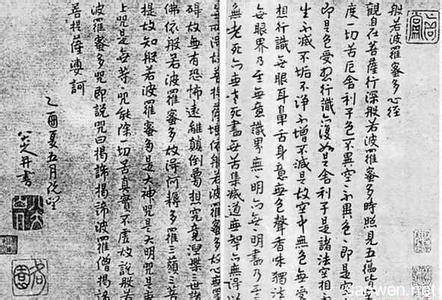 般若波羅蜜多心經
觀自在菩薩行深般若波羅蜜多時照見五蘊
度一切苦厄舍利子色不異空空不異色色即是空
即是色受想行識亦復如是舍利子是諸法空相
生不滅不垢不淨不增不減是故空中無色無受
想行識無眼耳鼻舌身意無色聲香味觸法
無眼界乃至無意識界無無明亦無無明盡乃至
無老死亦無老死盡無苦集滅道無智亦無得以
無所得故菩提薩埵依般若波羅蜜多故心無罣
礙故無有恐怖遠離顛倒夢想究竟涅槃三世諸
佛依般若波羅蜜多故得阿耨多羅三藐三菩
提故知般若波羅蜜多是大神咒是大明咒是無
上咒是無等咒能除一切苦真實不虛故說般若
波羅蜜多咒即說咒曰揭諦揭諦波羅僧揭諦
菩提薩婆訶
乙酉夏五月既望
八大山人書
sanwen.net